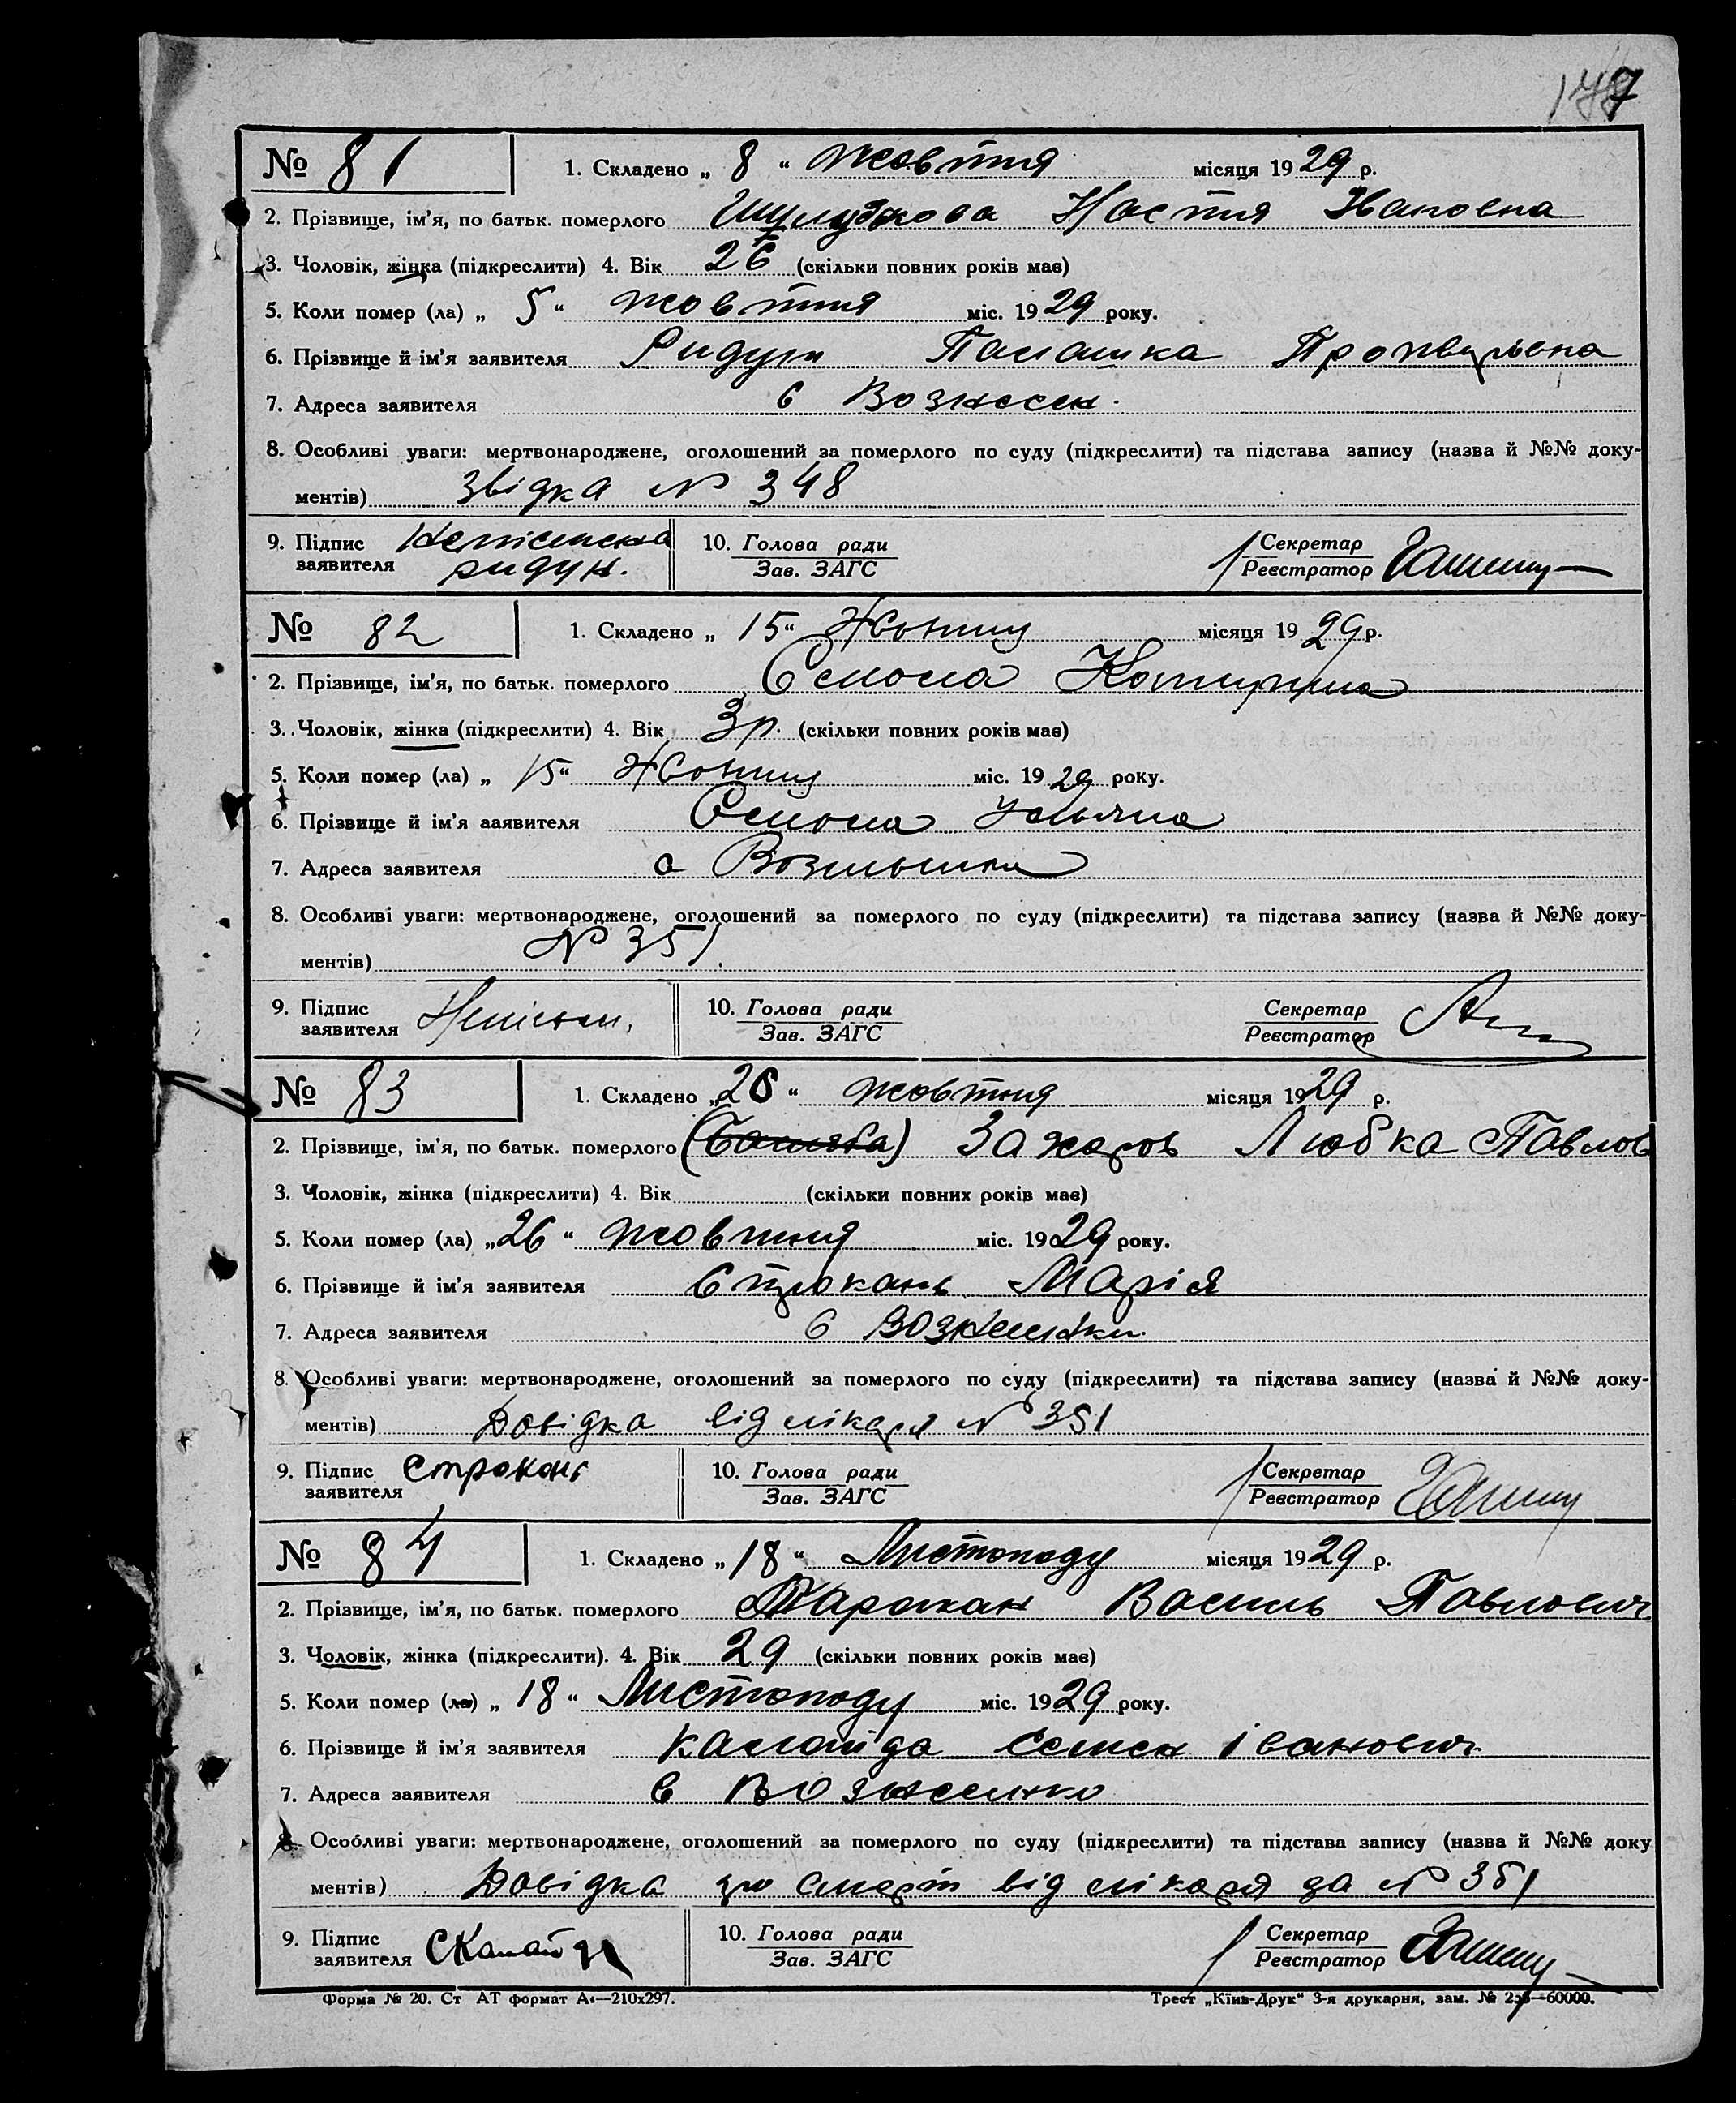 № 81 1. Складено „ 8 “ жовтня місяця 1929 р.
2. Прізвище, ім’я, по батьк. померлого Настя Івановна
3. Чоловік, жінка (підкреслити) 4. Вік 26 (скільки повних років має)
5. Коли помер (ла) „ 5 “ жовтня міс. 1929 року.
6. Прізвище й ім’я заявителя Палашка
7. Адреса заявителя с Вознесен.
8. Особливі уваги: мертвонароджене, оголошений за померлого по суду (підкреслити) та підстава запису (назва й №№ доку-
ментів) Звідка № 348
9. Підпис 10. Голова ради Секретар
заявителя Зав. ЗАГС Реєстратор
№ 82 1. Складено „ 15 “ Жовтня місяця 1929 р.
2. Прізвище, ім’я, по батьк. померлого Катерина
3. Чоловік, жінка (підкреслити) 4. Вік 3 р. (скільки повних років має)
5. Коли помер (ла) „ 15 “ Жовтня міс. 1929 року.
6. Прізвище й ім’я ааявителя Ульяна
7. Адреса заявителя с
8. Особливі уваги: мертвонароджене, оголошений за померлого по суду (підкреслити) та підстава запису (назва й №№ доку-
ментів) № 351
9. Підпис 10. Голова ради Секретар
заявителя Зав. ЗАГС Реєстратор
№ 83 1. Складено „ 26 “ жовтня місяця 1929 р.
2. Прізвище, ім’я, по батьк. померлого Захаров Любка Павлов
3. Чоловік, жінка (підкреслити) 4. Вік (скільки повних років має)
5. Коли помер (ла) „ 26 “ жовтня міс. 1929 року.
6. Прізвище й ім’я заявителя Стрюкань Марія
7. Адреса заявителя с
8. Особливі уваги: мертвонароджене, оголошений за померлого по суду (підкреслити) та підстава запису (назва й №№ доку-
ментів) Довідка від лікаря № 351
9. Підпис 10. Голова ради Секретар
заявителя Зав. ЗАГС Реєстратор
№ 84 1. Складено „ 18 “ Листопаду місяця 1929 р.
2. Прізвище, ім’я, по батьк. померлого Василь Павлович
3. Чоловік, жінка (підкреслити). 4. Вік 29 (скільки повних років має)
5. Коли помер (ла) „ 18 “ Листопаду міс. 1929 року.
6. Прізвище й ім’я заявителя Калайда Семен Іванович
7. Адреса заявителя с Вознесенко
8. Особливі уваги: мертвонароджене, оголошений за померлого по суду (підкреслити) та підстава запису (назва й №№ доку
ментів) Довідка про смерт від лікаря за № 351
9. Підпис 10. Голова ради Секретар
заявителя Зав. ЗАГС Реєстратор
Форма № 20. Ст АТ формат А₄—210х297. Трест „Київ-Друк“ 3-я друкарня, зам. № —60000.